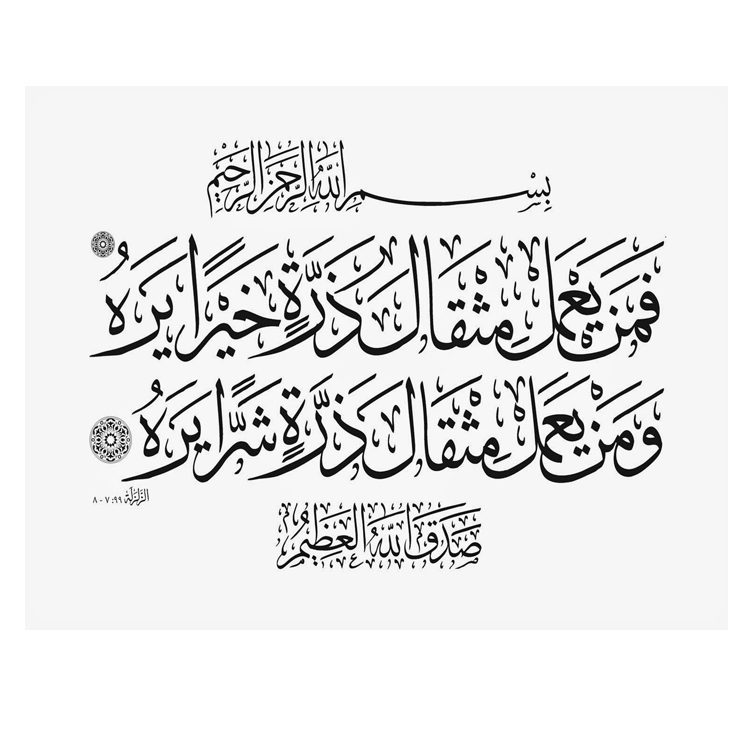 بِسْمِ اللَّهِ الرَّحْمَنِ الرَّحِيمِ
فَمَنْ يَعْمَلْ مِثْقَالَ ذَرَّةٍ خَيْرًا يَرَهُ
وَمَنْ يَعْمَلْ مِثْقَالَ ذَرَّةٍ شَرًّا يَرَهُ
الزلزلة ٩٩: ٧ - ٨
صَدَقَ اللَّهُ الْعَظِيمُ